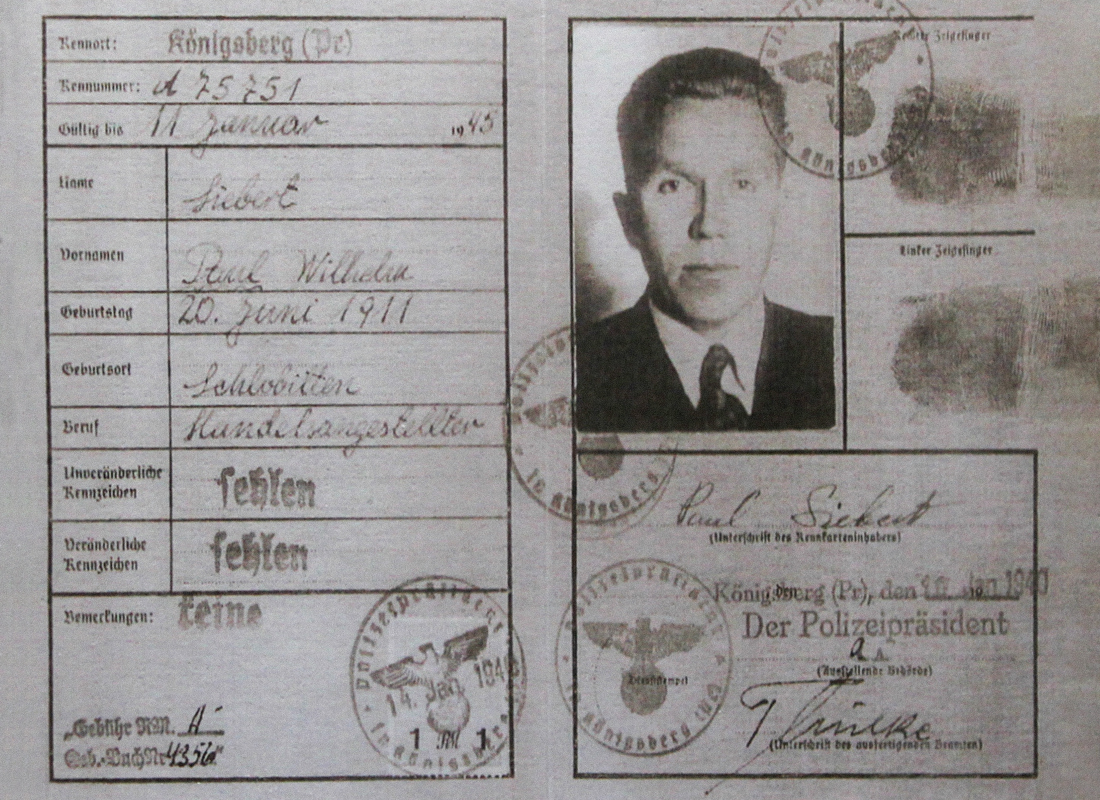 Kennort: Königsberg (Pr)
Kennummer: A 75751
Gültig bis 11 Januar 1945
Name Siebert
Vornamen Paul Wilhelm
Geburtstag 20. Juni 1911
Geburtsort Schlobitten
Beruf Handelsangestellter
Unveränderliche
Kennzeichen fehlen
Veränderliche
Kennzeichen fehlen
Bemerkungen: keine
Polizeipräsident
in Königsberg
14. Jan. 194
1 RM 1
„Gebühr RM.
Geb.-Buch Nr. 4356"
Rechter Zeigefinger
Linker Zeigefinger
in Königsberg
Polizeipräsident
in Königsberg
Paul Siebert
(Unterschrift des Kennkarteninhabers)
Königsberg (Pr), den Jan 1940
Der Polizeipräsident
(Ausstellende Behörde)
Dienststempel
Polizeipräsident
in Königsberg
(Unterschrift des ausfertigenden Beamten)